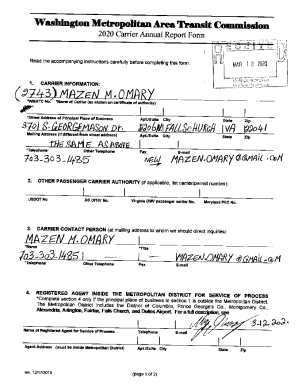 Washington Metropolitan Area Transit Commission
2020 Carrier Annual Report Form
Read the accompanying instructions carefully before completing this form
MAR 12 2020
1. CARRIER INFORMATION:
(2743) MAZEN M. OMARY
*WMATC No. *Name of Carrier (as shown on certificate of authority)
*Street Address of Principal Place of Business Apt./Suite City State Zip
3701 S. GEORGE MASON Dr. 2206N FALLS CHURCH VA 22041
Mailing Address (if different from street address) Apt./Suite City State Zip
THE SAME AS ABOVE
*Telephone Other Telephone Fax E-mail
703-303-1485 NEW MAZEN.OMARY@GMAIL.COM
2. OTHER PASSENGER CARRIER AUTHORITY (if applicable, list carrier/permit number):
USDOT No. Virginia DMV passenger carrier No. Maryland PSC No.
3. CARRIER CONTACT PERSON (at mailing address to whom we should direct inquiries):
MAZEN M. OMARY
*Name *Title
703-303-1485 MAZEN.OMARY@GMAIL.COM
*Telephone Other Telephone Fax E-mail
4. REGISTERED AGENT INSIDE THE METROPOLITAN DISTRICT FOR SERVICE OF PROCESS
*Complete section 4 only if the principal place of business in section 1 is outside the Metropolitan District.
The Metropolitan District includes the District of Columbia, Prince George's County, Montgomery Co.,
Alexandria, Arlington, Fairfax, Falls Church, and Dulles Airport. For a full description, see
3-12-202
Name of Registered Agent for Service of Process Telephone E-mail
Agent Address (must be inside Metropolitan District) Apt./Suite City State Zip
(page 1 of 2)